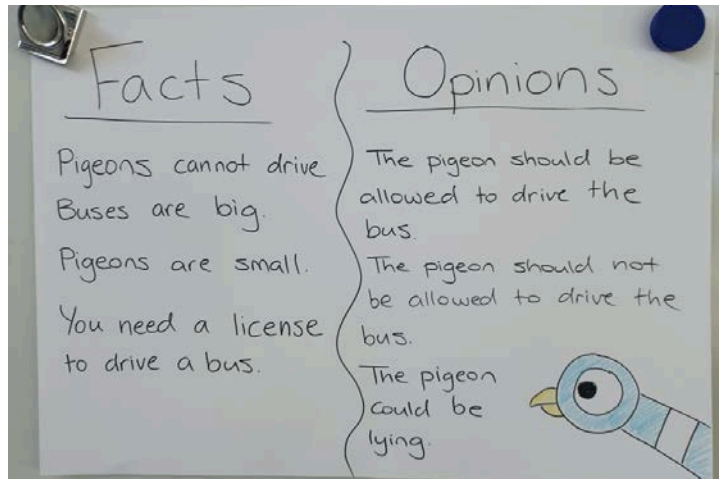 Facts
Pigeons cannot drive
Buses are big.
Pigeons are small.
You need a license
to drive a bus.
Opinions
The pigeon should be
allowed to drive the
bus.
The pigeon should not
be allowed to drive the
bus.
The pigeon
could be
lying.